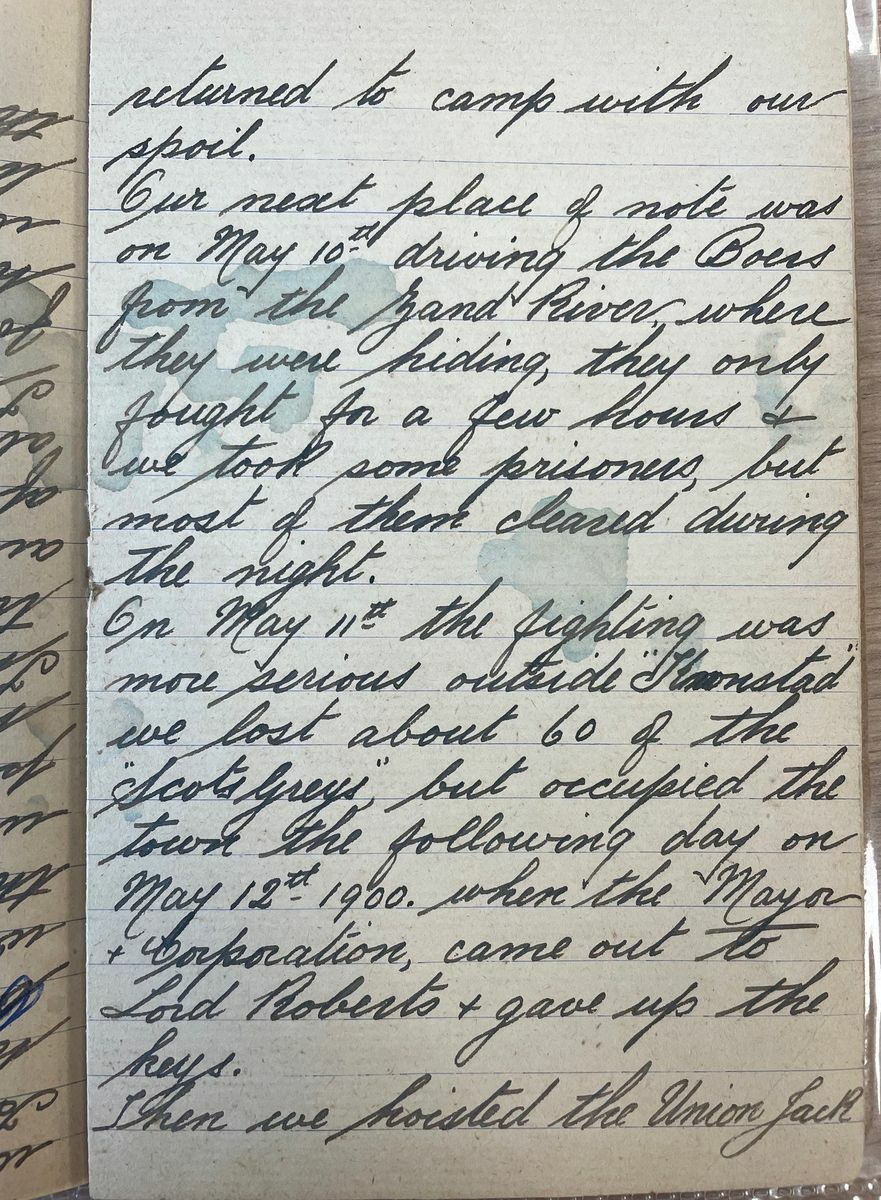 returned to camp with our
spoil.
Our next place of note was
on May 10th driving the Boers
from the Zand River, where
they were hiding, they only
fought for a few hours &
we took some prisoners, but
most of them cleared during
the night.
On May 11th the fighting was
more serious outside "Kronstad"
we lost about 60 of the
"Scots Greys", but occupied the
town the following day on
May 12th 1900. when the Mayor
+ Corporation, came out to
Lord Roberts + gave up the
keys.
Then we hoisted the Union Jack